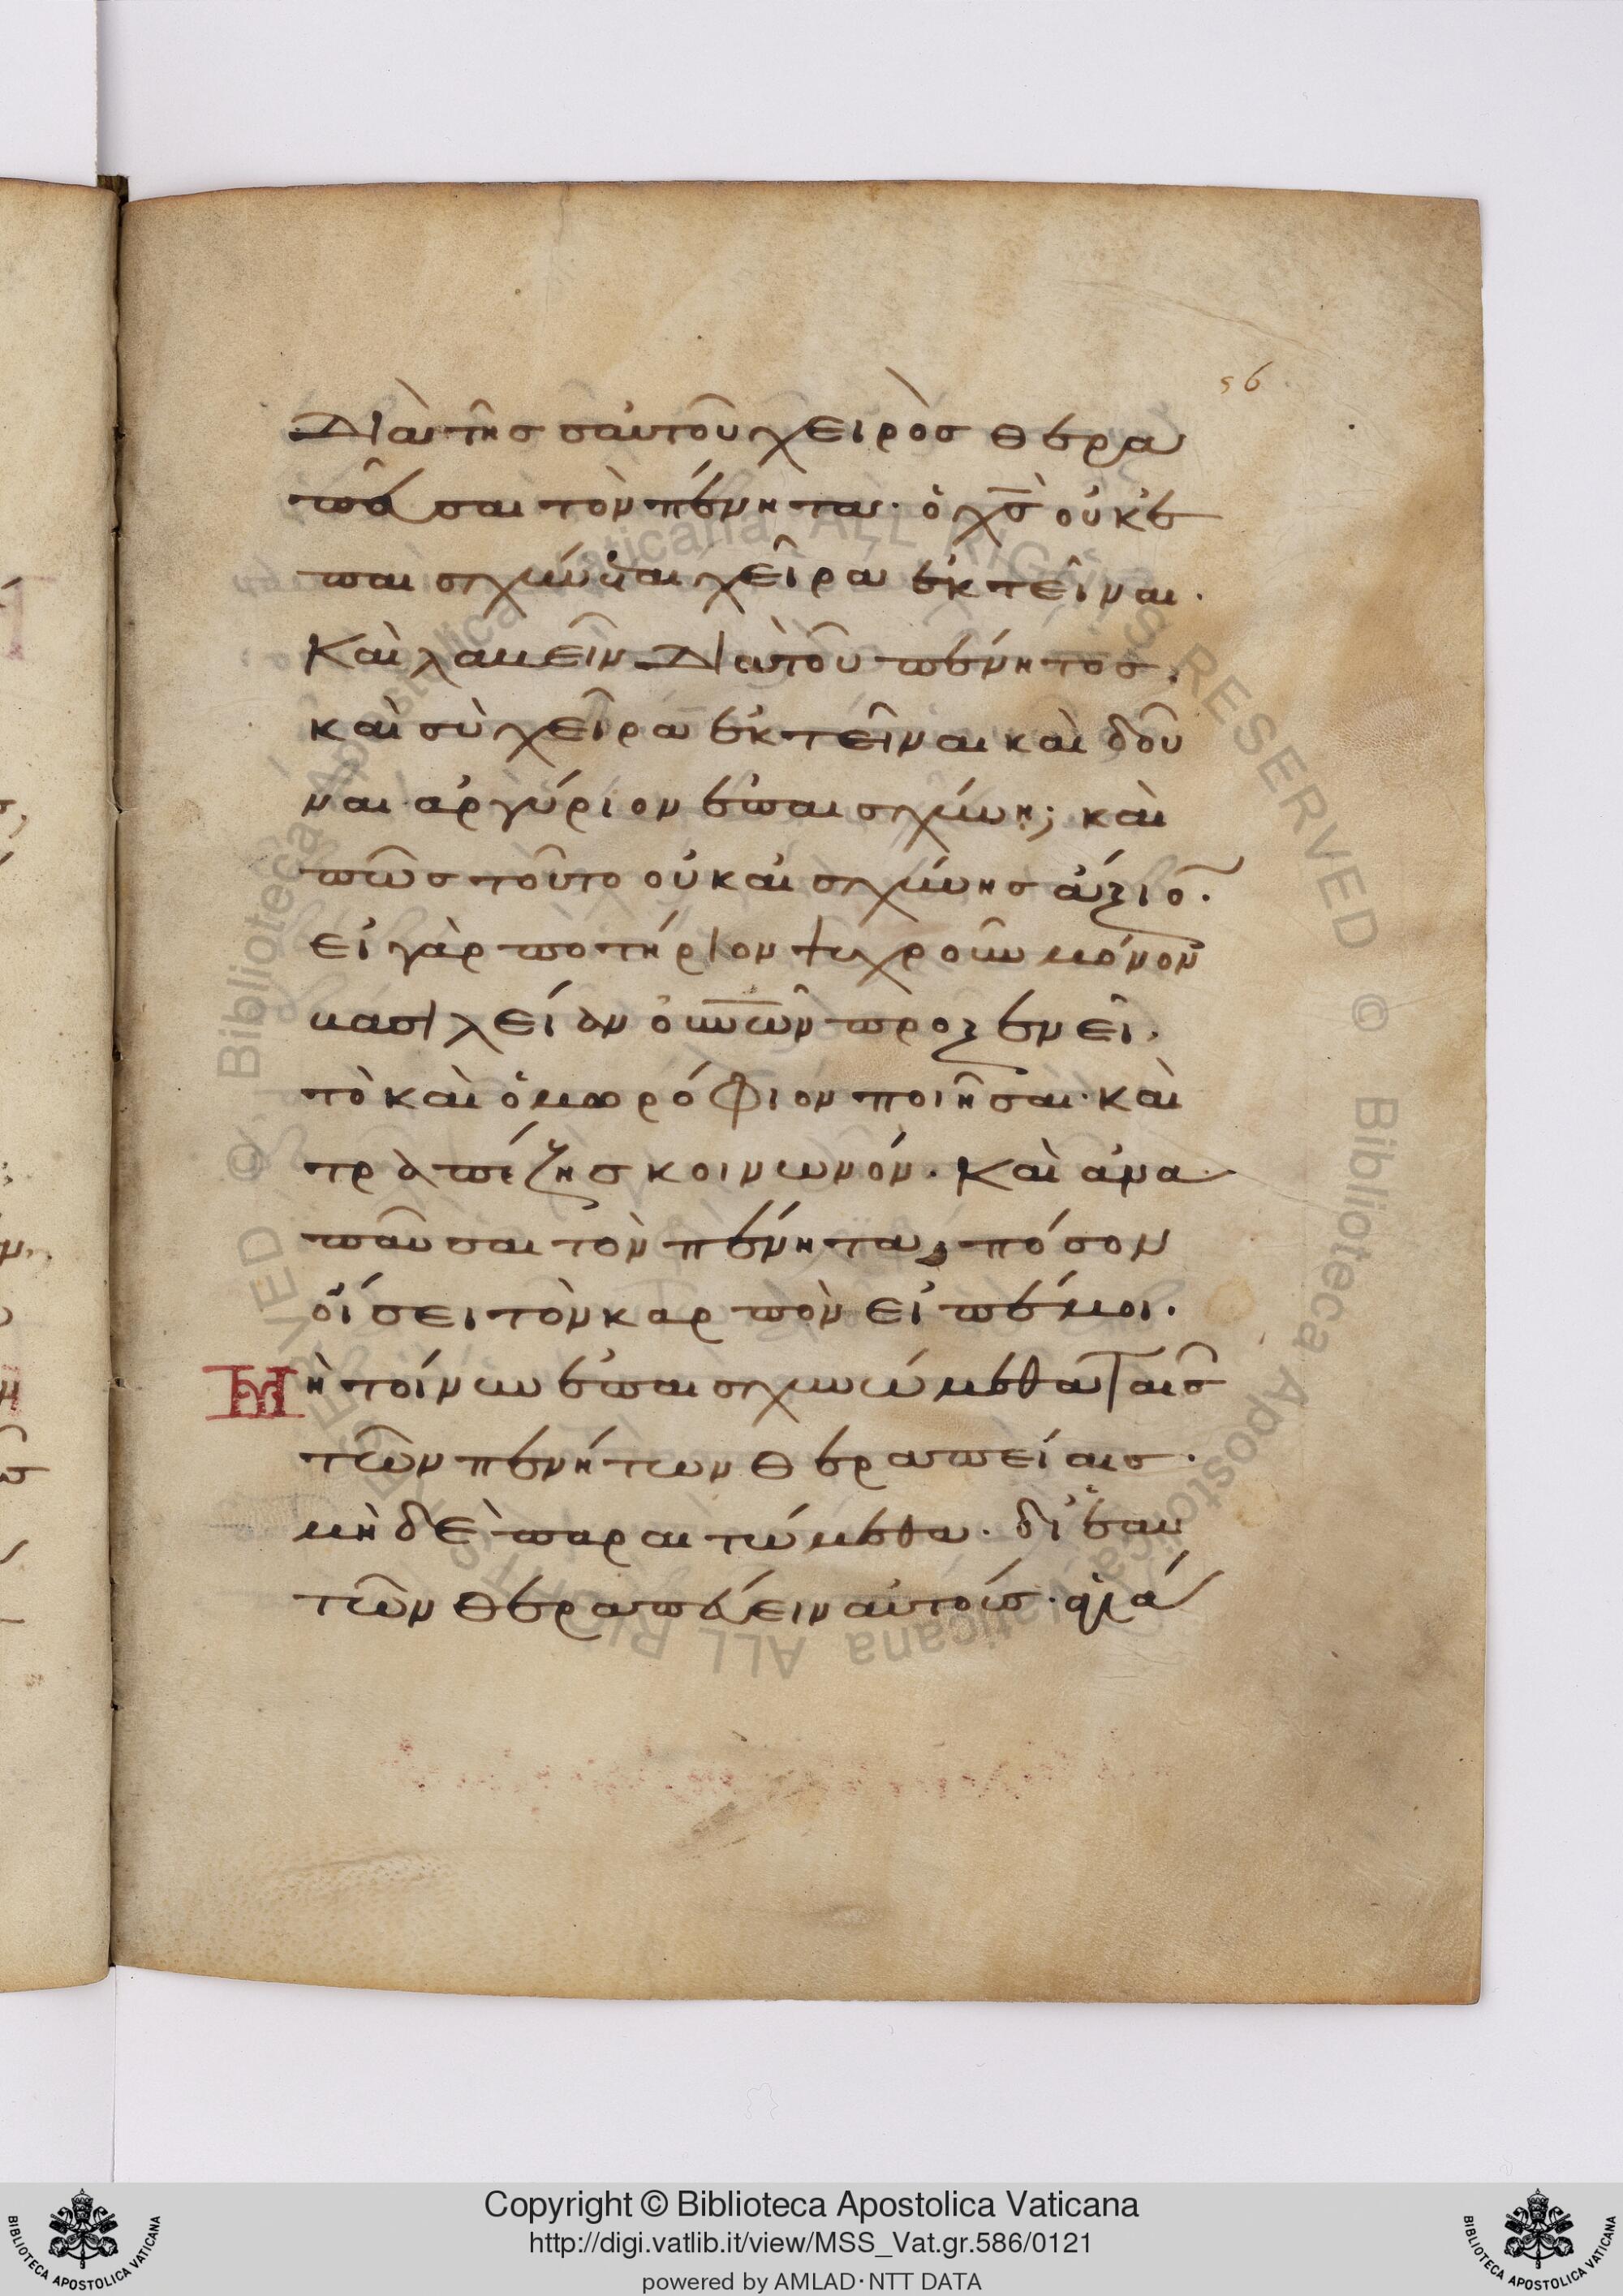 56
Διὰ τῆς σαυτοῦ χειρὸς θερα
πεῦσαι τὸν πένητα· ὁ χς̅ οὐκ ἐ
παισχύνεται χεῖρα ἐκτεῖναι·
Καὶ λαβεῖν διὰ τοῦ πένητος,
καὶ σὺ χεῖρα ἐκτεῖναι καὶ δοῦ
ναι ἀργύριον ἐπαισχύνη; καὶ
πῶς τοῦτο οὐκ αἰσχύνης ἄξιο̅·
εἰ γὰρ ποτήριον ψυχροῦ μόνον
βασιλείαν οὐ̅ν̅ω̅ν̅ προξενεῖ·
τὸ καὶ ὁμωρόφιον ποιῆσαι· καὶ
τραπέζης κοινωνόν· Καὶ ἀνα
παῦσαι τὸν πένητα, πόσον
οἴσει τὸν καρπὸν εἰπέ μοι·
Μὴ τοίνυν ἐπαισχυνώμεθα ταῖς
τῶν πενήτων θεραπείαις·
μὴ δὲ παραιτώμεθα· δι' ἑαυ
τῶν θεραπεύειν αὐτούς· ἀλλά
Copyright © Biblioteca Apostolica Vaticana
http://digi.vatlib.it/view/MSS_Vat.gr.586/0121
powered by AMLAD·NTT DATA
BIBLIOTECA APOSTOLICA VATICANA
BIBLIOTECA APOSTOLICA VATICANA
© Biblioteca Apostolica Vaticana ALL RIGHTS RESERVED © Biblioteca Apostolica Vaticana ALL RIGHTS RESERVED